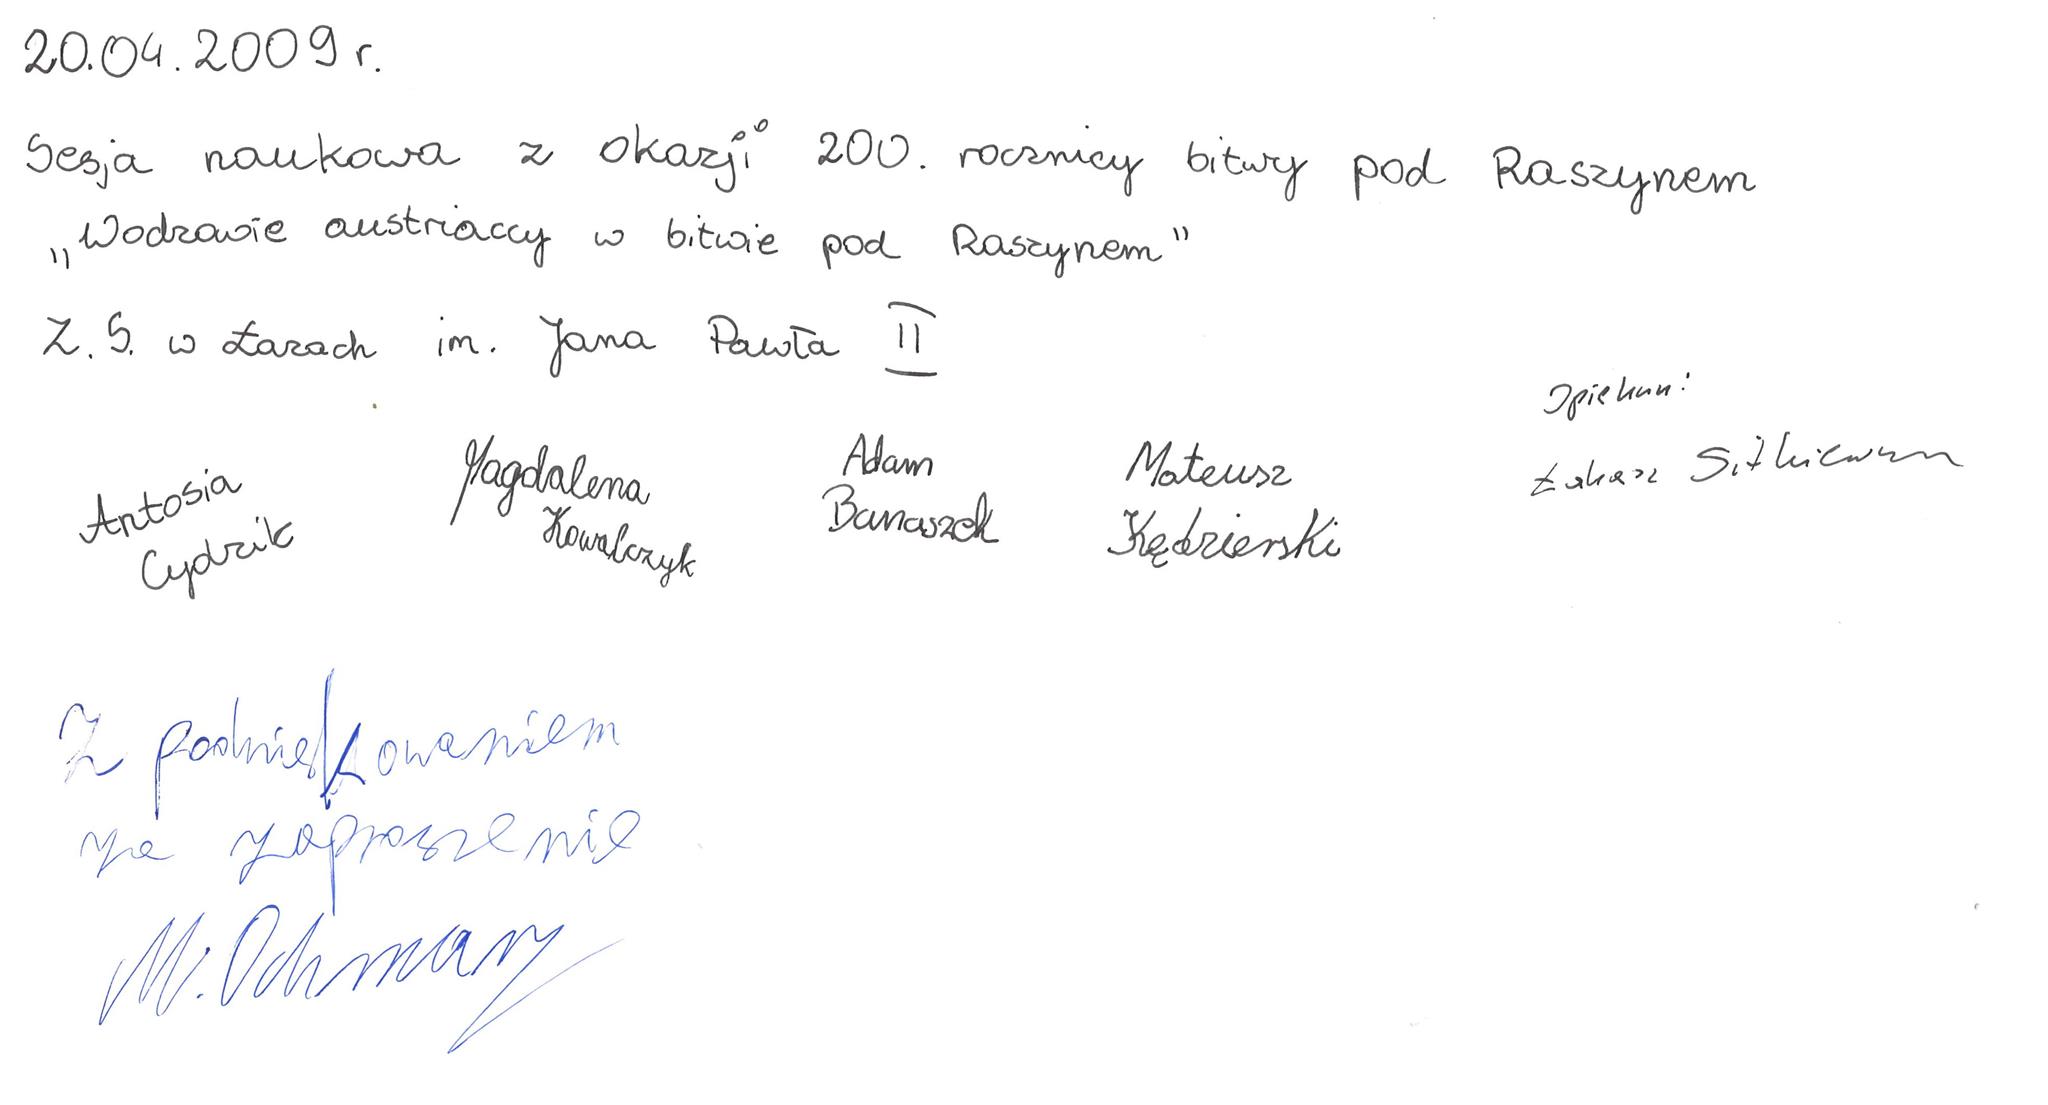 20.04.2009 r.
Sesja naukowa z okazji 200. rocznicy bitwy pod Raszynem
„Wodzowie austriaccy w bitwie pod Raszynem”
Z. S. w Łazach im. Jana Pawła II
Opiekun:
Antosia Cydzik
Magdalena Kowalczyk
Adam Banaszek
Mateusz Kędzierski
Łukasz
Z podziękowaniem
za zaproszenie
M. Ochman